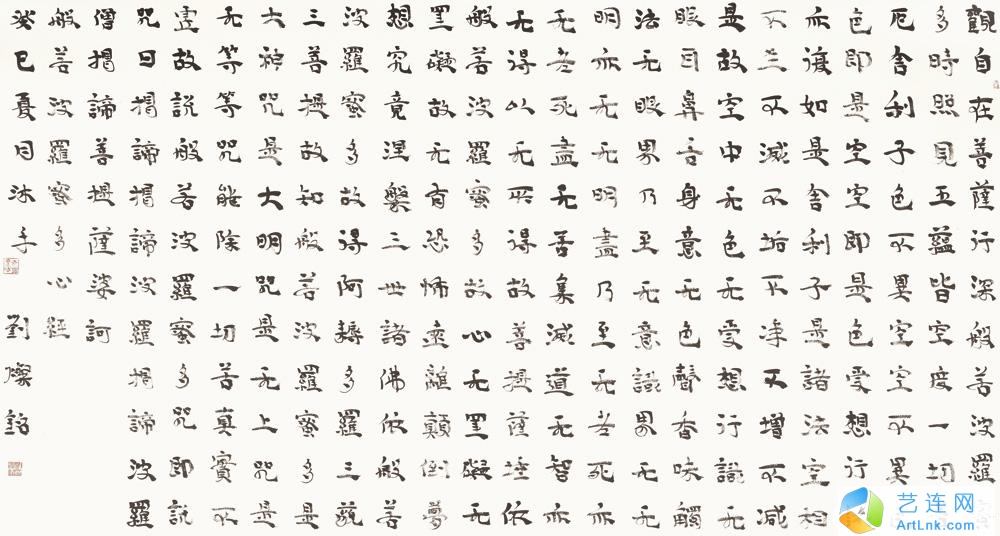 觀自在菩薩行深般若波羅
多時照見五蘊皆空度一切
厄舍利子色不異空空不異
色即是空空即是色受想行
亦復如是舍利子是諸法空相
不生不滅不垢不淨不增不減
是故空中无色无受想行識无
眼耳鼻舌身意无色聲香味觸
法无眼界乃至无意識界无无
明亦无无明盡乃至无老死亦
无老死盡无苦集滅道无智亦
无得以无所得故菩提薩埵依
般若波羅蜜多故心无罣礙无
罣礙故无有恐怖遠離顛倒夢
想究竟涅槃三世諸佛依般若
波羅蜜多故得阿耨多羅三藐
三菩提故知般若波羅蜜多是
大神咒是大明咒是无上咒是
无等等咒能除一切苦真實不
虛故說般若波羅蜜多咒即說
咒曰揭諦揭諦波羅揭諦波羅
僧揭諦菩提薩婆訶
般若波羅蜜多心經
癸巳夏月沐手 劉燦銘
艺连网
ArtLnk.com